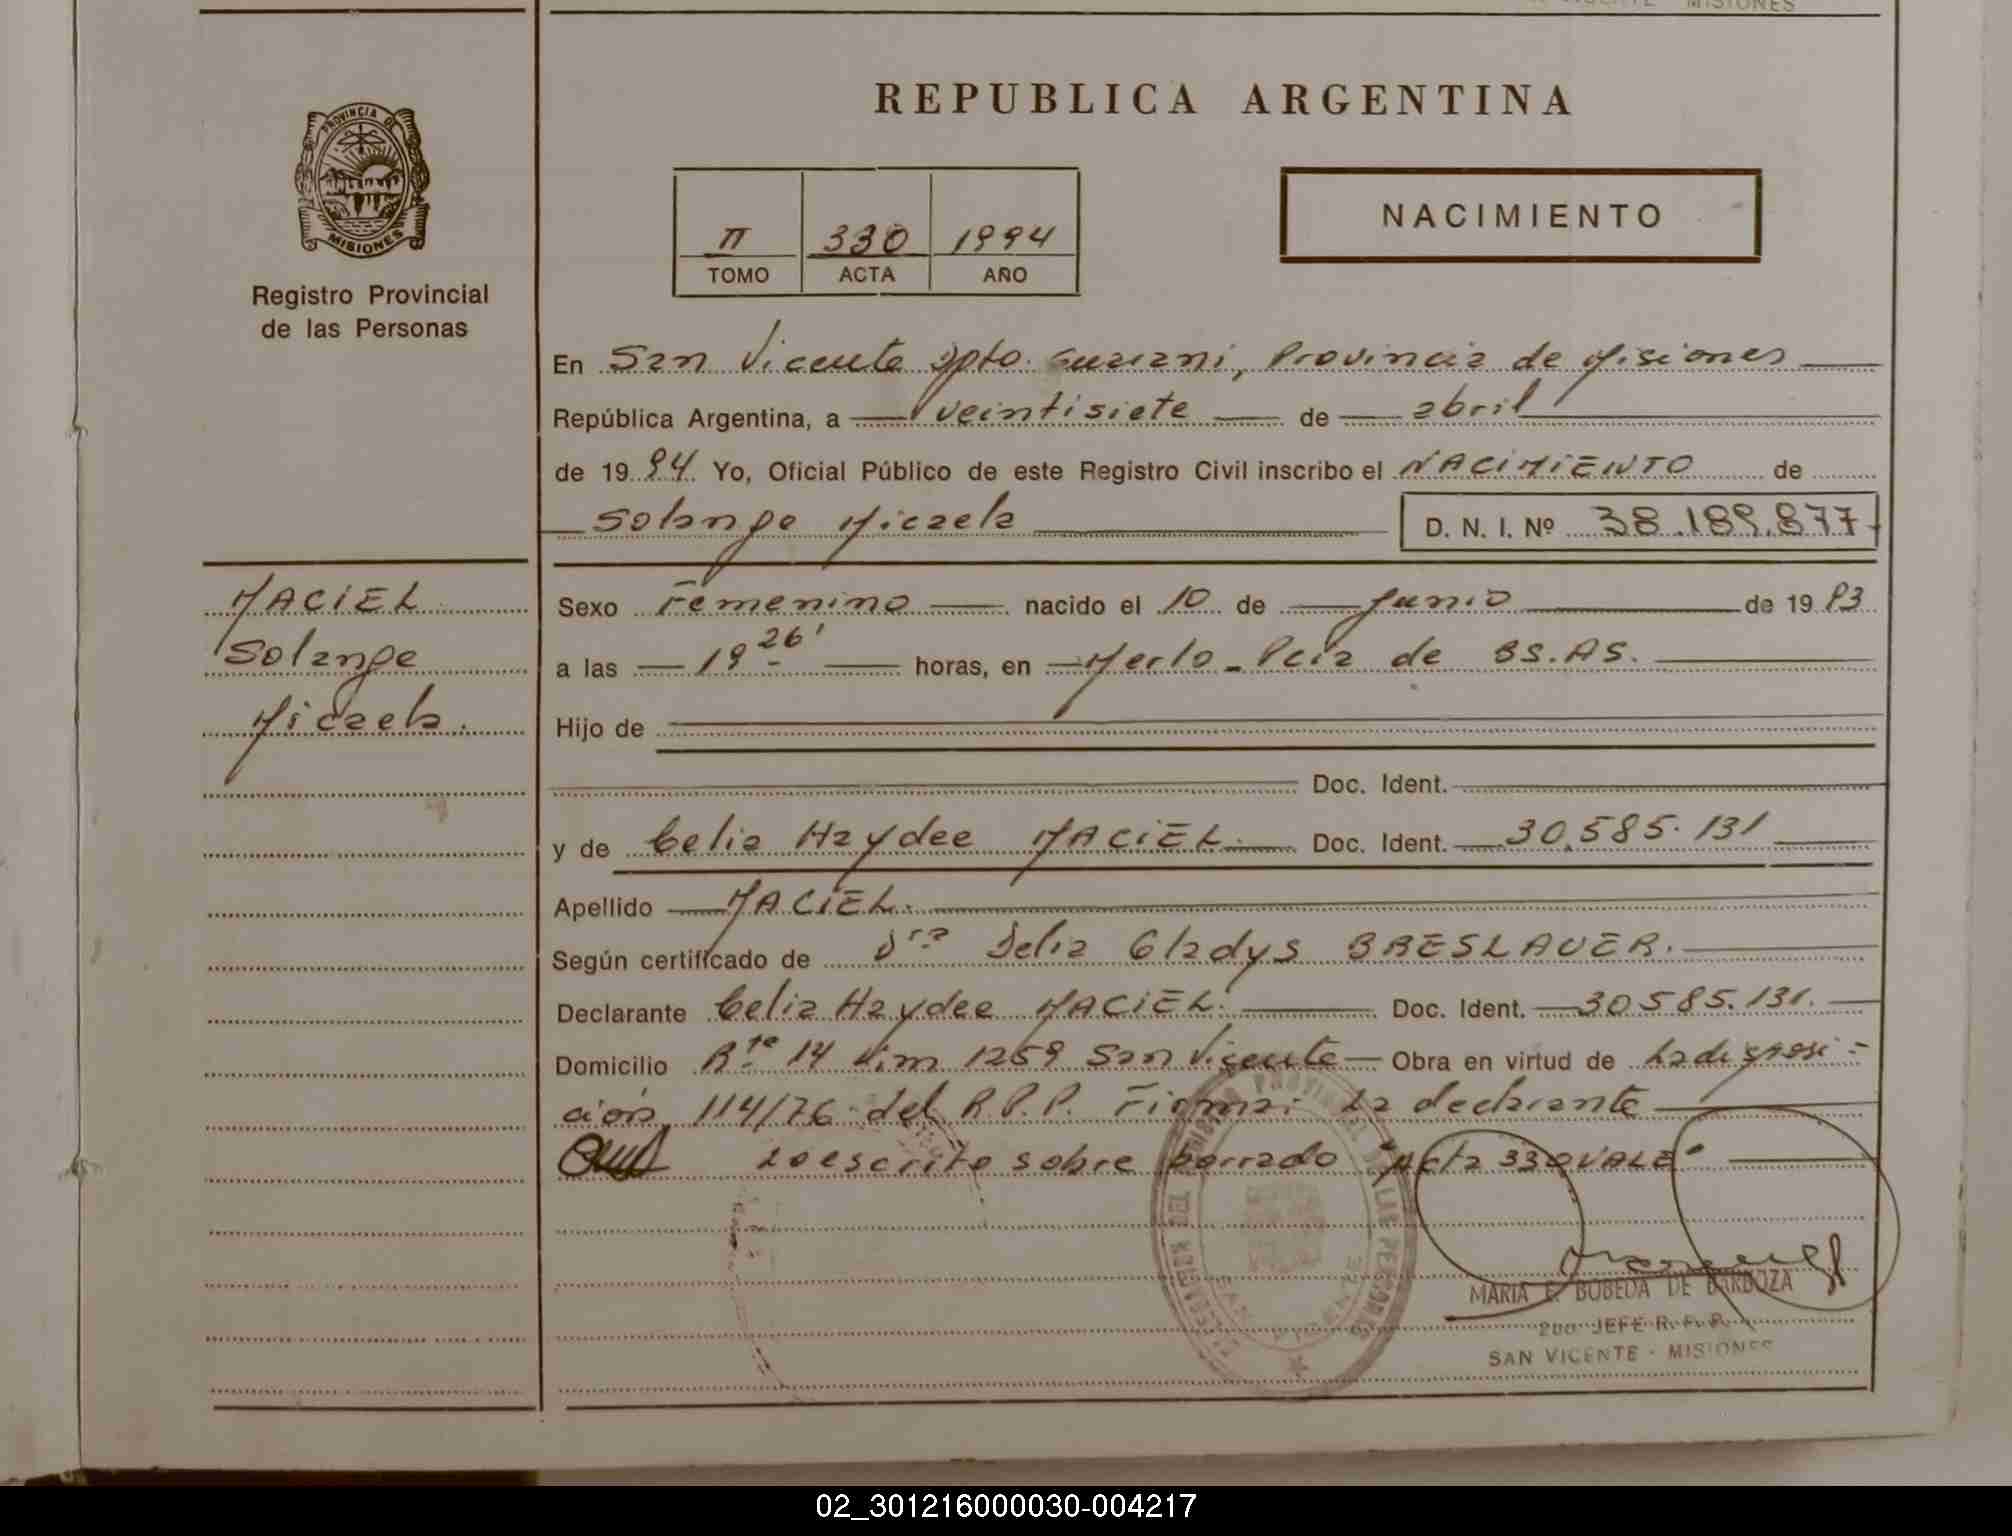 MISIONES
REPUBLICA ARGENTINA
PROVINCIA DE
MISIONES
Registro Provincial
de las Personas
II 330 1994
TOMO ACTA AÑO
NACIMIENTO
En San Vicente Dpto. Guarani, Provincia de Misiones
República Argentina, a veintisiete de abril
de 1994 Yo, Oficial Público de este Registro Civil inscribo el NACIMIENTO de
Solange Micaela D. N. I. Nº 38.189.877
MACIEL
Solange
Micaela.
Sexo Femenino nacido el 10 de Junio de 1993
a las 19 26' horas, en Merlo - Pcia de BS.AS.
Hijo de
Doc. Ident.
y de Celia Haydee MACIEL. Doc. Ident. 30.585.131
Apellido MACIEL.
Según certificado de Dra Delia Gladys BRESLAUER.
Declarante Celia Haydee MACIEL. Doc. Ident. 30585.131.
Domicilio Rta 14 Km 1259 San Vicente Obra en virtud de La disposi-
ción 114/76 del R.P.P. Firma: La declarante
Lo escrito sobre borrado "Acta 330 VALE"
SAN VICENTE
MARIA E. BOBEDA DE BARBOZA
2do JEFE R. P. P.
SAN VICENTE - MISIONES
02_301216000030-004217